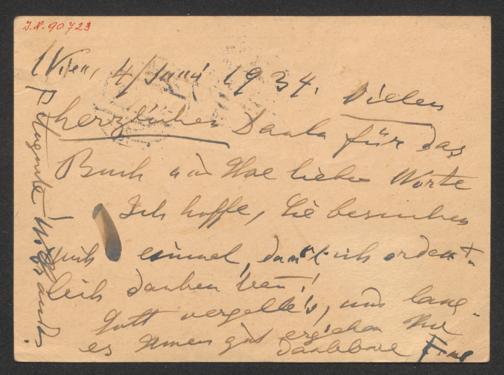 I.N. 90723
Wien, 4/Juni 1934. Vielen
herzlichen Dank für das
Buch u. die liebe Worte
Ich hoffe, Sie besuchen
mich einmal, damit ich ordent-
lich danken kann!
Gott vergelte's, und lang-
es Ihnen gut ergehen Ihre
dankbare